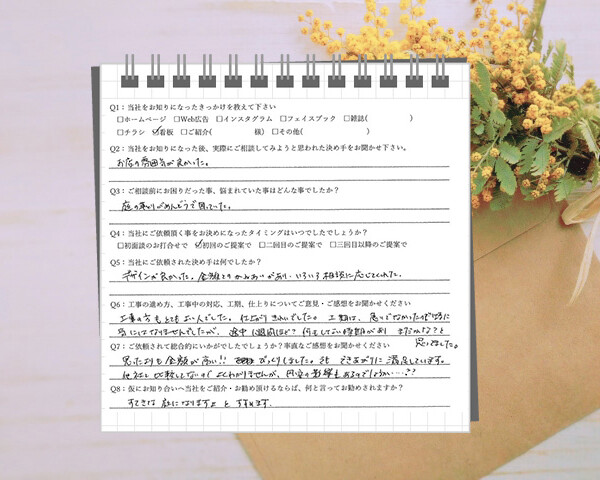 Q1：当社をお知りになったきっかけを教えて下さい
□ホームページ □Web広告 □インスタグラム □フェイスブック □雑誌( )
□チラシ ☑看板 □ご紹介( 様) □その他( )
Q2：当社をお知りになった後、実際にご相談してみようと思われた決め手をお聞かせ下さい。
お店の雰囲気が良かった。
Q3：ご相談前にお困りだった事、悩まれていた事はどんな事でしたか？
庭の草刈りがめんどうで困っていた。
Q4：当社にご依頼頂く事をお決めになったタイミングはいつでしたでしょうか？
□初面談のお打合せで ☑初回のご提案で □二回目のご提案で □三回目以降のご提案で
Q5：当社にご依頼された決め手は何でしたか？
デザインが良かった。金額とのかねあいがあり、いろいろ相談に応じてくれた。
Q6：工事の進め方、工事中の対応、工期、仕上りについてご意見・ご感想をお聞かせください
工事の方もとてもよい人でした。仕上がりきれいでした。工期は、急いでなかったので特に
気にはなりませんでしたが、途中1週間ほど？何もしない時期があり まだかな？と
思ってました。
Q7：ご依頼されて総合的にいかがでしたでしょうか？率直なご感想をお聞かせください
思ったよりも金額が高い!! びっくりしました。でも できあがりに満足しています。
他社と比較してないのでよくわかりませんが、円安の影響もあるのでしょうか…??
Q8：仮にお知り合いへ当社をご紹介・お勧め頂けるならば、何と言ってお勧めされますか？
すてきな庭になりますよ とすすめます。